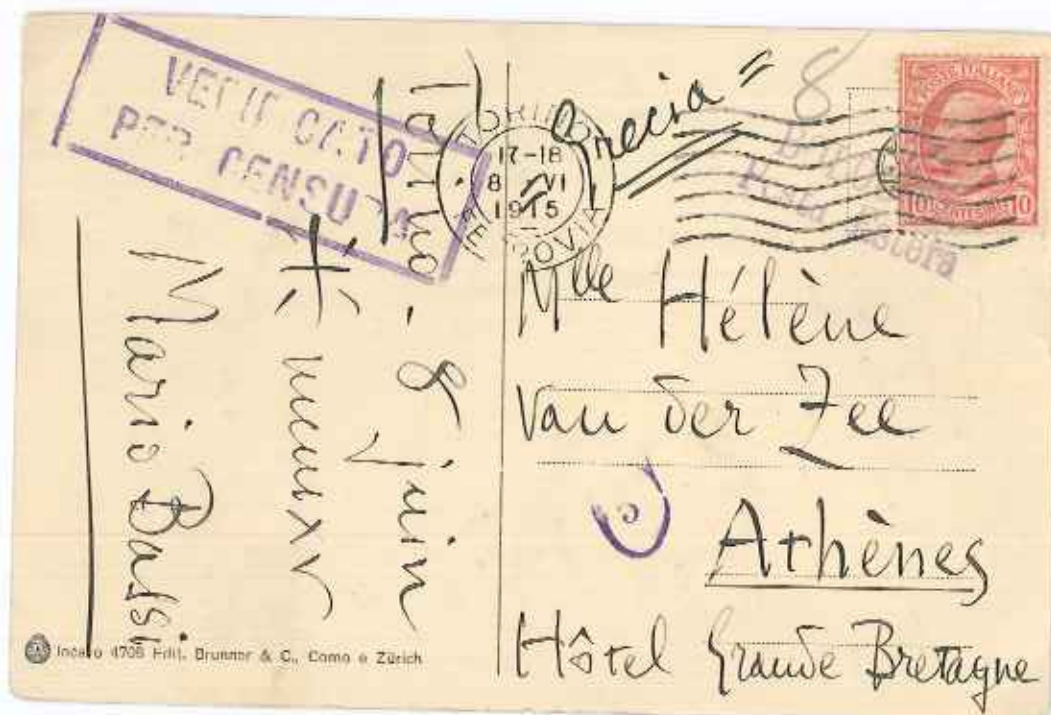 VERIFICATO
PER CENSURA
Torino. 8 juin
mcmxv
Mario Bassi
TORINO
17-18
8 VI
1915
FERROVIA
Grecia =
8
Posta Estera
POSTE ITALIANE
10 CENTESIMI 10
Mlle Hélène
van der Zee
Athènes
Hôtel Grande Bretagne
Incavo 4708 Edit. Brunner & C., Como e Zürich